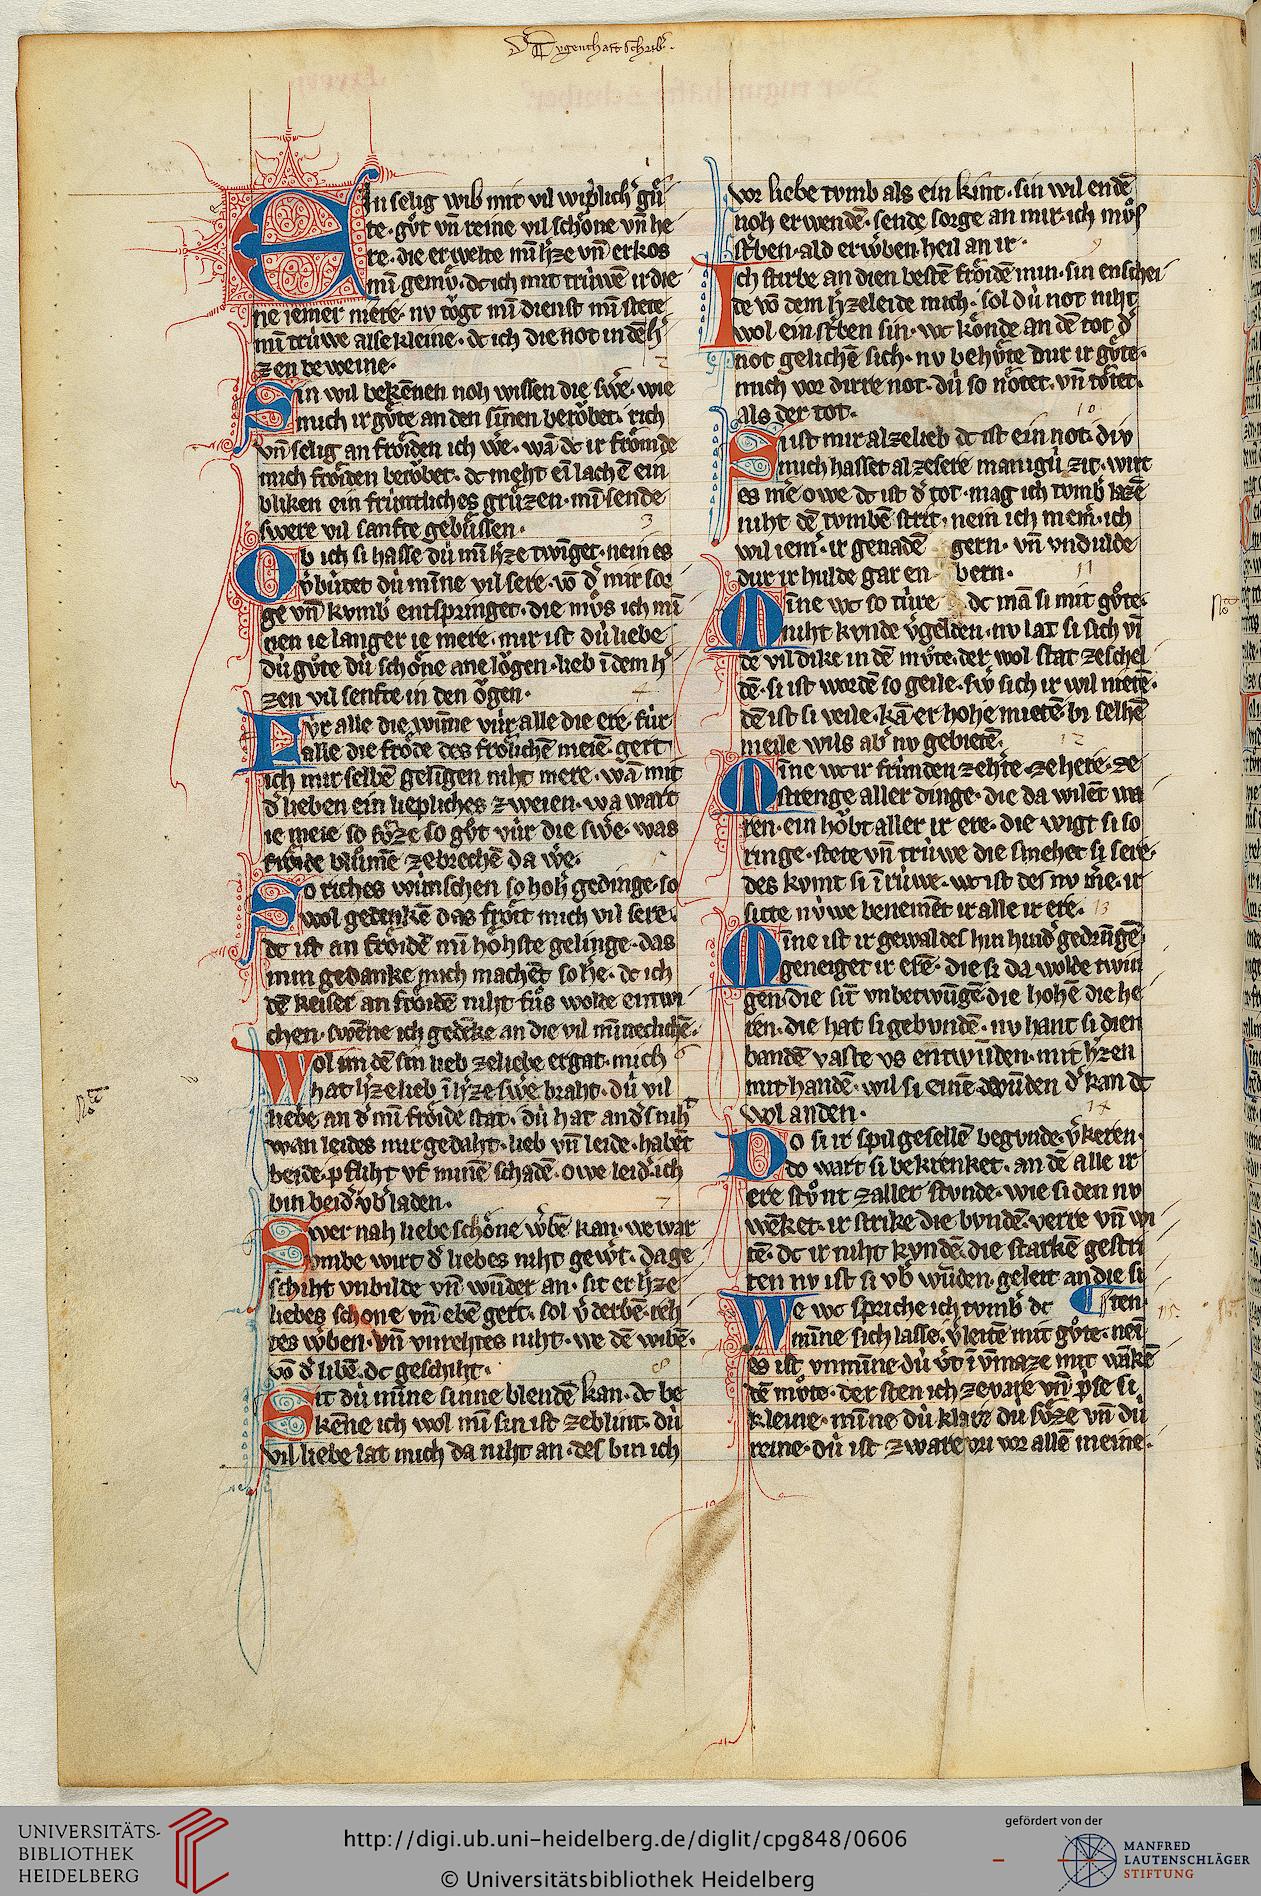 Tugenthaft schrib̾.
Ein selig wib mit vil wiplich̾ gůͤ
te. gůt vn̄ reine vil schoͤne vn̄ he
re. die erwelte mī h̾ze vn̄ erkos
mī gemuͤ. dc ich mit trùwē ir die
ne iemer mere. nv toͮgt mī dienst mī stete
mī trùwe alse kleine. dc ich die not in dē h̾
zen beweine.
Sin wil bekēnen noh wissen die sw̾e. wie
mich ir guͤte an den sīnen beroͮbet. rich
vn̄ selig an froͤiden ich w̾e. wā dc ir froͤmde
mich froͤiden beroͮbet. dc meht eī lachē ein
bliken ein frùntliches gruͤzen. mī sende
swere vil sanfte gebuͤssen.
Ob ich si hasse dù mī h̾ze twinget. nein es
v̾bùtet dù mīne vil sere. vō d̾ mir sor
ge vn̄ kvmb̾ entspringet. die mvͦs ich mī
nen ie langer ie mere. mir ist dù liebe
dù guͤte dù schoͤne ane loͮgen. lieb ī dem h̾
zen vil senfte in den oͮgen.
Fùr alle die wūne vùr alle die ere. fùr
alle die froͤde des froͤlichē meiē. gert
ich mir selbē gelīgen niht mere. wā mit
d̾ lieben ein liepliches zweien. wa wart
ie meie so suͤze so gůt vùr die sw̾e. was
froͤide blůmē zebrechē da w̾e.
So riches wùnschen so hoh̾ gedinge. so
wol gedenkē das froͤit mich vil sere.
dc ist an froͤidē mī hohste gelinge. das
min gedanke mich machēt so h̾e. dc ich
dē keiser an froͤidē niht fuͦs wolde entwi
chen. swēne ich gedēke an die vil mīneclichē.
Wol im dē sin lieb zeliebe ergat. mich
hat h̾zelieb ī h̾ze sw̾e braht. dù vil
liebe an d̾ mī froͤide stat. dù hat and̾s niht
wan leides mir gedaht. lieb vn̄ leide. habēt
beide. pfliht vf minē schadē. owe leid̾. ich
bin beid̾ vb̾laden.
Swer nah liebe schoͤne w̾bē kan. we war
vmbe wirt d̾ liebes niht gew̾t. da ge
schiht vnbilde vn̄ wūder an. sit er h̾ze
liebes schone vn̄ ebē gert. sol v̾derbē. reh
tes w̾ben. vn̄ vnrehtes niht. we dē wibē.
vō d̾ libē. dc geschiht.
Sit dù mīne sinne blendē kan. dc be
kēne ich wol mī sin ist zeblint. dù
vil liebe lat mich da niht an. des bin ich
vor liebe tvmb als ein kint. sin wil endē
noh erwendē. sende sorge an mir. ich mvͦs
st̾ben. ald erw̾ben. heil an ir.
Ich stirbe an dien bestē froͤidē min. sin enschei
de vō dem h̾zeleide mich. sol dù not niht
wol ein st̾ben sin. wc koͤnde an dē tot d̾
not gelichē sich. nv behuͤte dur ir guͤte.
mich vor dirre not. dù so noͤtet. vn̄ toͤtet.
als der tot.
Si ist mir alzelieb dc ist ein not. div
mich hasset alzesere manigù zit. wirt
es m̾e owe dc ist d̾ tot. mag ich tvmb̾ lazē
niht dē tvmbē strit. nein ich mein. ich
wil iem̾. ir genadē gern. vn̄ vndulde
dur ir hulde gar en bern.
Mīne wc so tùre dc mā si mit gůte.
niht kvnde v̾gelden. nv lat si sich vī
dē vil dike in dē mvͦte. der wol stat zeschel
dē. si ist wordē so geile. sw̾ sich ir wil mietē.
dē ist si veile. kā er hohe mietē. bi selhē
meile wils ab̾ nv gebietē.
Mīne wc ir frùnden zeh̾re. ze here. ze
strenge aller dinge. die da wilēt wa
ren. ein hoͮbt aller ir ere. die wigt si so
ringe. stete vn̄ trùwe die smehet si sere.
des kvmt si ī rùwe. wc ist des nv m̾e. ir
sitte nùwe benemēt ir alle ir ere.
Mīne ist ir gewaldes hin hind̾ gedrūgē
geneiget ir erē. die si da wolde twin
gen. die sīt vnbetwūgē. die hohē die he
ren. die hat si gebvndē. nv hant si dien
bandē vaste vs entwūden. mit h̾zen
mit handē. wil si einē wūden d̾ kan dc
wol anden.
Do si ir spilgesellē begvnde v̾keren.
do wart si bekrenket. an dē alle ir
ere stvͦnt zaller stvnde. wie si den nv
wēket. ir strike die bvndē. verre vn̄ wi
tē. dc ir niht kvndē. die starkē gestri
ten nv ist si vb̾wūden. geleit an die si
We wc spriche ich tvmb̾ dc ¶ ten.
mīne sich lasse. v̾leitē mit gůte. neī
es ist vnmīne. dù v̾t ī v̄maze mit wākē
dē mvͦte. der sten ich zevare vn̄ pͥse si
kleine. mīne dù klare dù suͤze vn̄ dù
reine. dù ist zware vri vor allē meine.
2
3
4
6
7
8
9
10
11
12
13
14
15.
UNIVERSITÄTS-
BIBLIOTHEK
HEIDELBERG
http://digi.ub.uni-heidelberg.de/diglit/cpg848/0606
© Universitätsbibliothek Heidelberg
gefördert von der
MANFRED
LAUTENSCHLÄGER
STIFTUNG